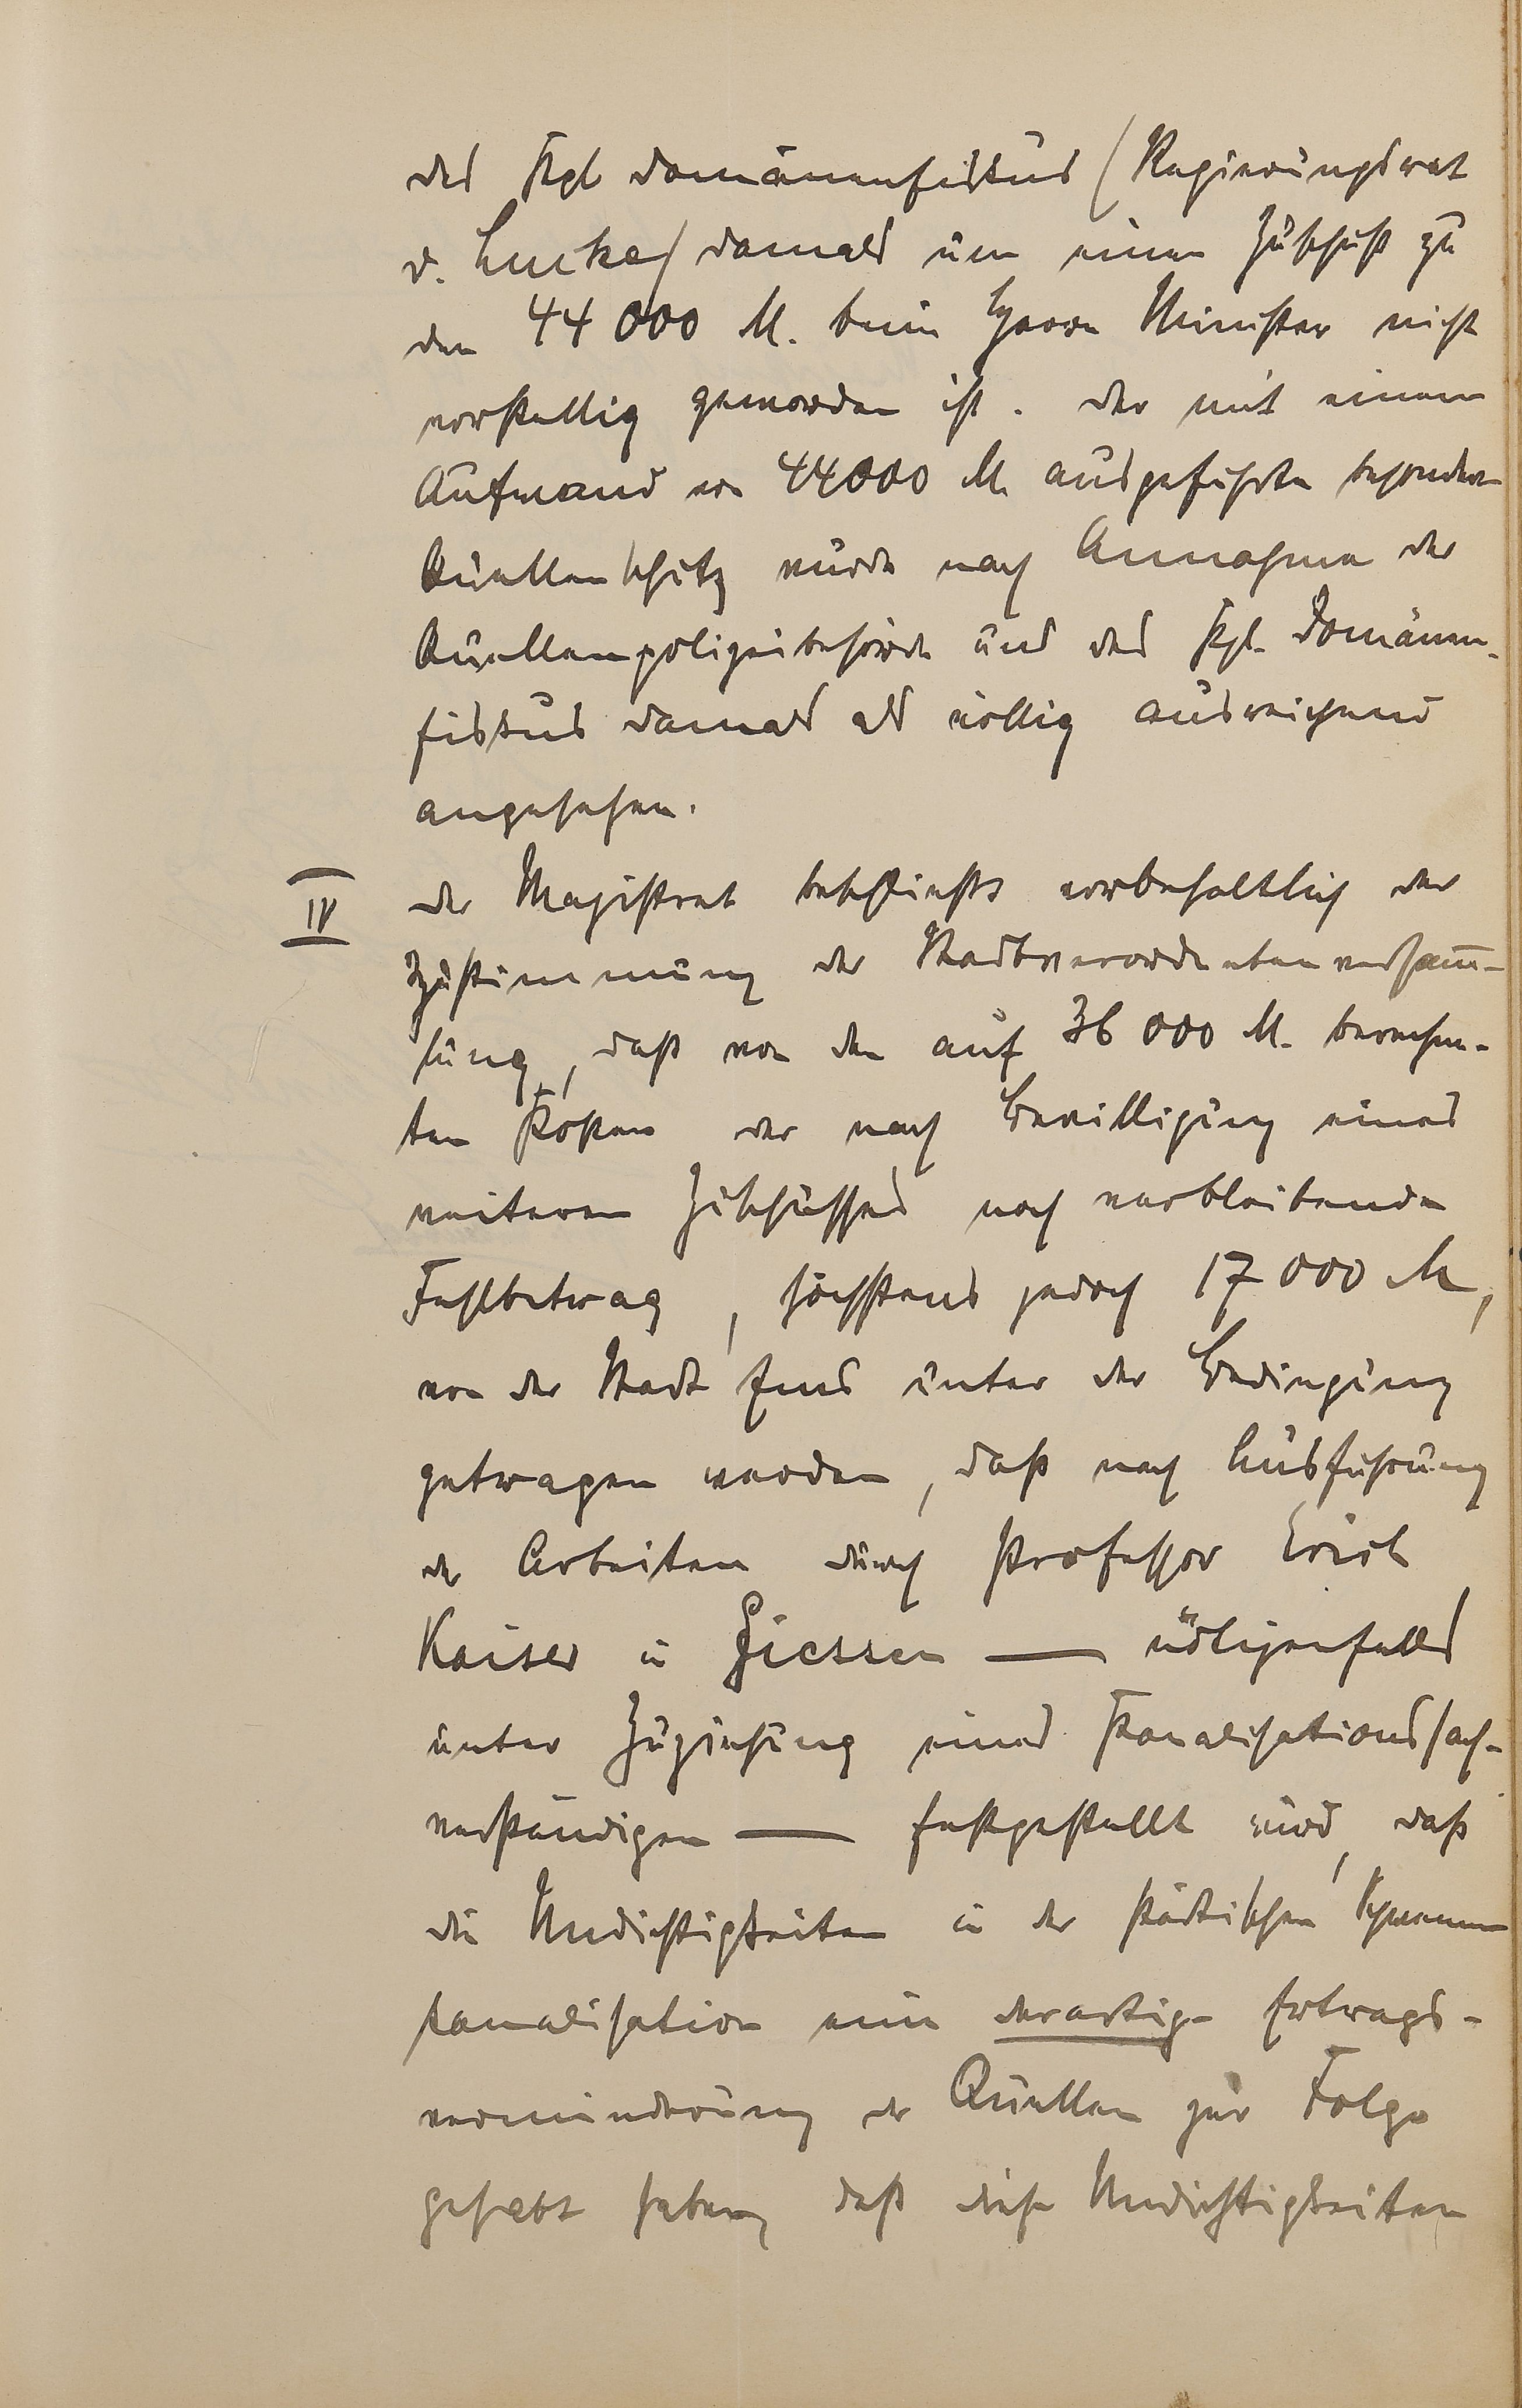 des Kgl Domänenfiskus (Regierungsrat
v. Lucke) damals um einen Zuschuß zu
den 44 000 M. beim Herrn Minister nicht
vorstellig geworden ist. Der mit einem
Aufwand von 44000 M. ausgeführte besondere
Quellenschutz wurde nach Annahme der
Quellenpolizeibehörde und des Kgl. Domänen-
fiskus damals als völlig ausreichend
angesehen.
IV Der Magistrat beschließt vorbehaltlich der
Zustimmung der Stadtverordnetenversam̅-
lung, daß von den auf 36 000 M. berechne-
ten Kosten der nach Bewilligung eines
weiteren Zuschusses noch verbleibende
Fehlbetrag, höchstens jedoch 17 000 M,
von der Stadt Ems unter der Bedingung
getragen werden, daß nach Ausführung
der Arbeiten durch Professor Erich
Kaiser in Giessen — nötigenfalls
unter Zuziehung eines Kanalisationssach-
verständigen — festgestellt wird, daß
die Undichtigkeiten in der städtischen Schwemm
kanalisation eine derartige Ertrags-
verminderung der Quellen zur Folge
gehabt haben, daß diese Undichtigkeiten